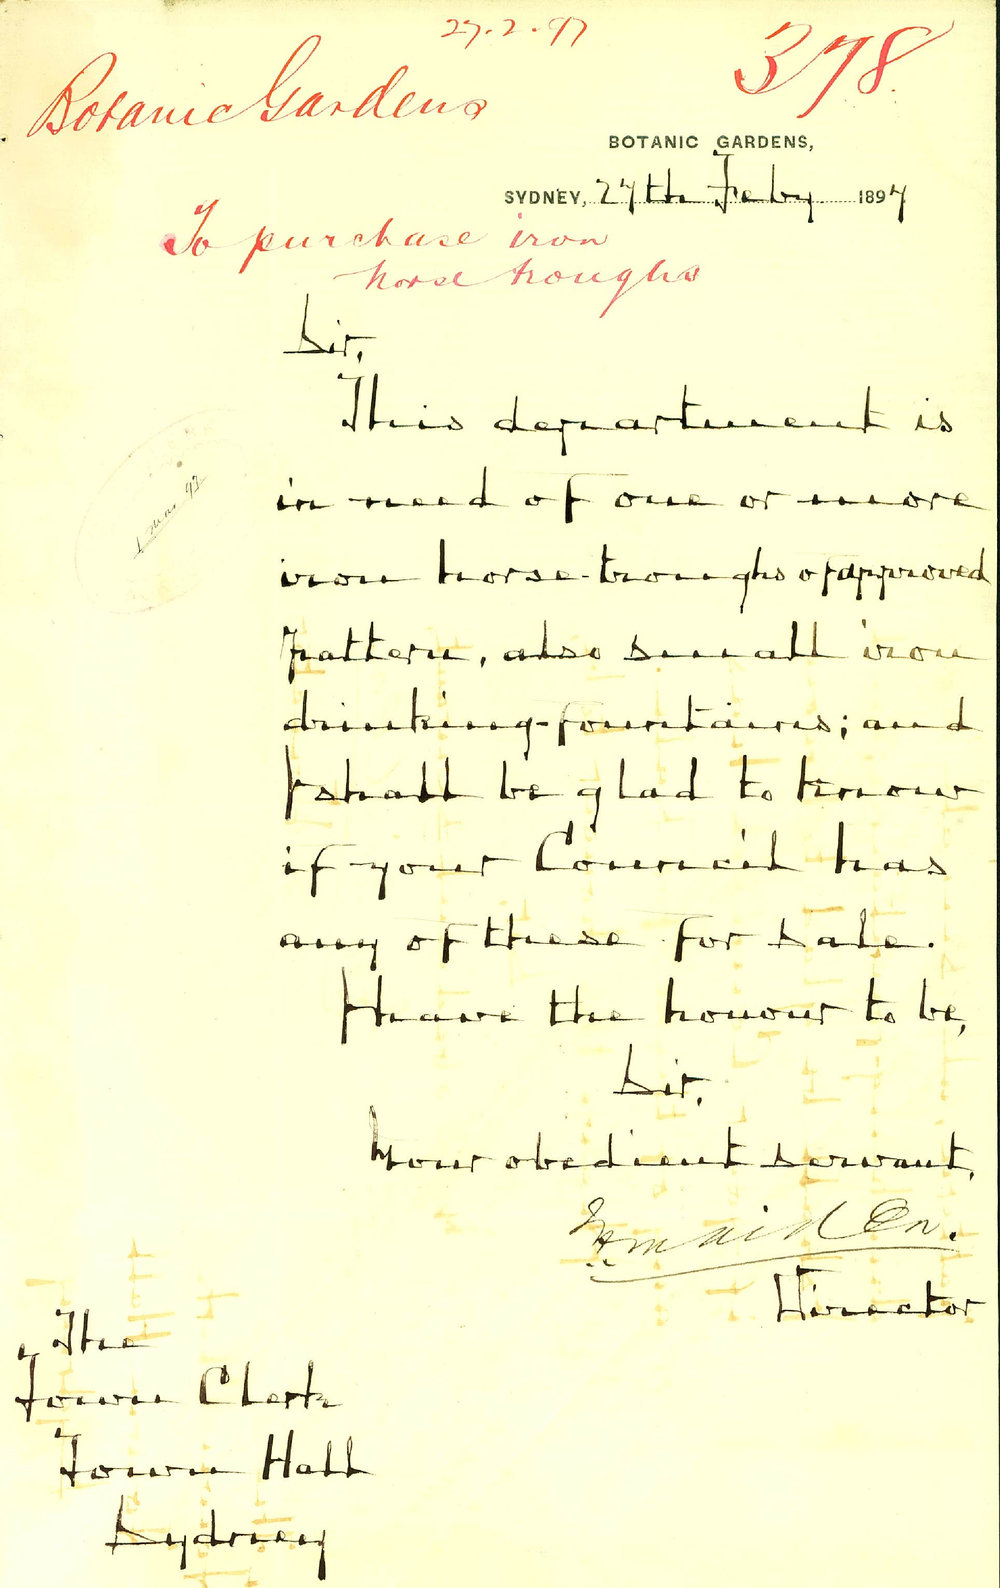 27.2.97
378
Botanic Gardens
BOTANIC GARDENS,
SYDNEY, 27th Feby 1897
To purchase iron
horse troughs
Sir,
This department is
in need of one or more
iron horse-troughs of approved
pattern, also small iron
drinking-fountains; and
I shall be glad to know
if your Council has
any of these for sale.
I have the honour to be,
Sir,
Your obedient servant,
JHMaiden.
Director
The
Town Clerk
Town Hall
Sydney
1 Mar 97